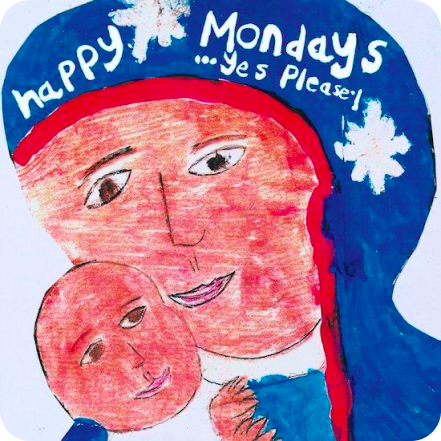 happy Mondays
...yes Please!